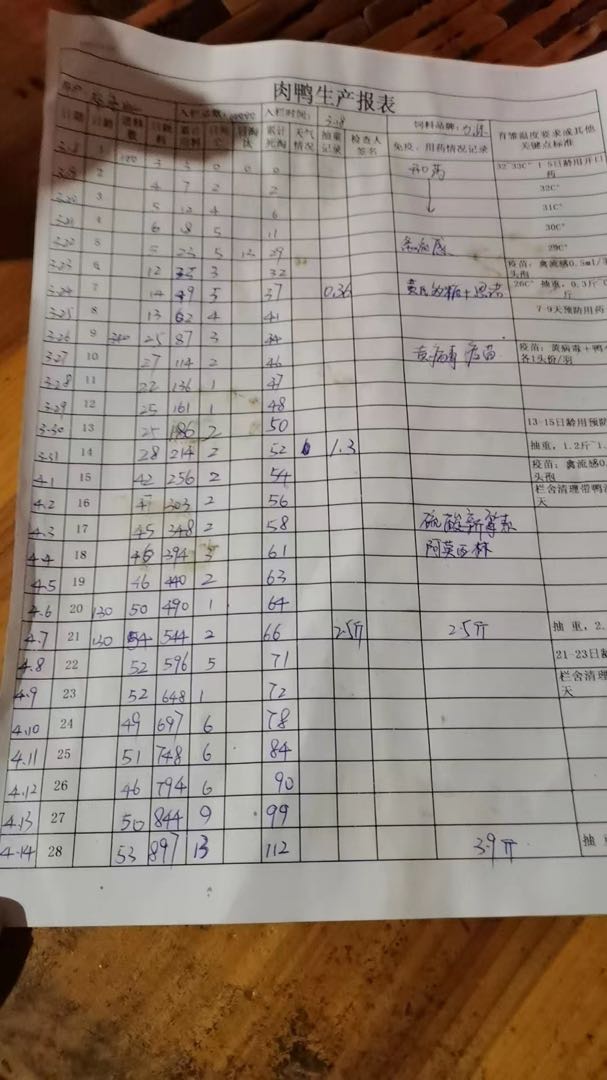 肉鸭生产报表
入栏总数: 入栏时间: 3.18 饲料品牌:
育雏温度要求或其他关键点标准
日期 日龄 进料数 日耗料 累计耗料 日死亡 日淘汰 累计死淘 天气情况 抽重记录 检查人签名 免疫、用药情况记录
1 3 3 0 0 0 开口药 32-33C° 1-5日龄用开口药
2 4 7 2 2 32C°
3 5 12 4 6 31C°
4 6 18 5 11 30C°
3.22 5 5 23 5 13 29 禽流感 29C°
3.23 6 12 35 3 32 疫苗:禽流感0.5ml/ 头孢
3.24 7 14 49 5 37 0.36 26C° 抽重,0.3斤-0. 斤
3.25 8 13 62 4 41 7-9天预防用药
3.26 9 25 87 3 44 黄病毒 疫苗 疫苗:黄病毒+鸭 各1头份/羽
3.27 10 27 114 2 46
3.28 11 22 136 1 47
3.29 12 25 161 1 48
3.30 13 25 186 2 50 13-15日龄用预防
3.31 14 28 214 2 52 1.3 抽重,1.2斤-1.
4.1 15 42 256 2 54 疫苗:禽流感0. 头孢
4.2 16 47 303 2 56 栏舍清理带鸭 天
4.3 17 45 348 2 58 硫酸新霉素
4.4 18 46 394 3 61 阿莫西林
4.5 19 46 440 2 63
4.6 20 130 50 490 1 64
4.7 21 130 54 544 2 66 2.5斤 2.5斤 抽重,2.
4.8 22 52 596 5 71 21-23日龄
4.9 23 52 648 1 72 栏舍清理 天
4.10 24 49 697 6 78
4.11 25 51 748 6 84
4.12 26 46 794 6 90
4.13 27 50 844 9 99
4.14 28 53 897 13 112 3.9斤 抽